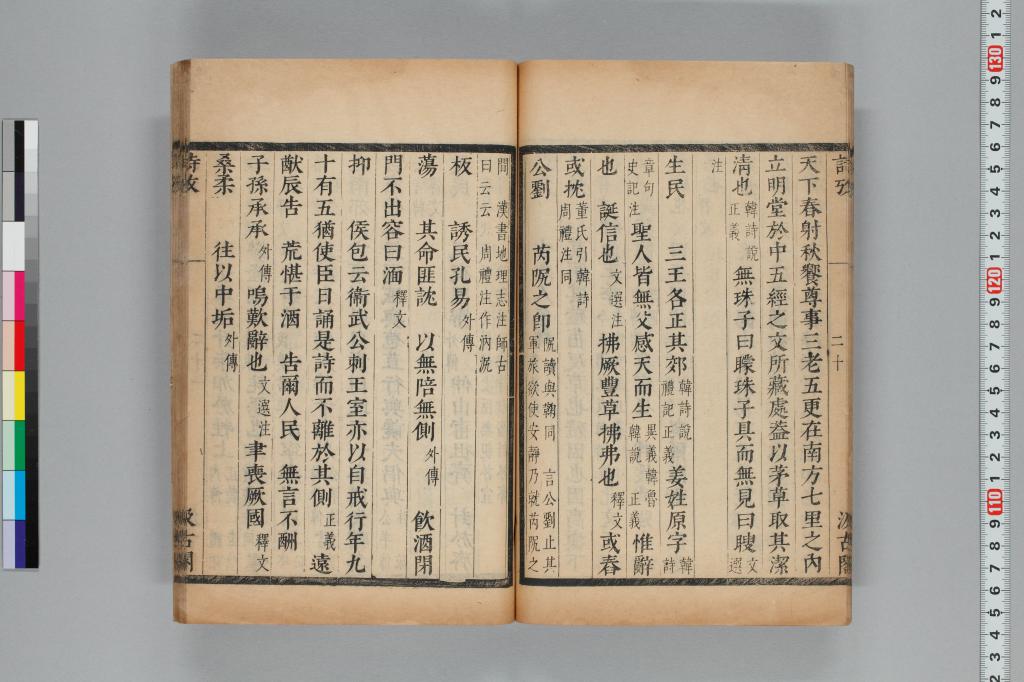 詩攷
二十
汲古閣
天下春射秋饗尊事三老五更在南方七里之內
立明堂於中五經之文所藏處葢以茅草取其潔
淸也韓詩說正義 無珠子曰矇珠子具而無見曰瞍文選
注
生民 三王各正其郊韓詩說禮記正義 姜姓原字韓詩
章句史記注 聖人皆無父感天而生異義韓魯韓說 正義 惟辭
也 誕信也文選注 拂厥豐草拂弗也釋文 或舂
或抌董氏引韓詩周禮注同
公劉 芮阮之卽阮讀與鞫同 言公劉止其軍旅欲使安靜乃就芮阮之
間 漢書地理志注師古曰云云 周禮注作汭沠
板 誘民孔易外傳
蕩 其命匪訦 以無陪無側外傳 飮酒閉
門不出容曰湎釋文
抑 侯包云衞武公刺王室亦以自戒行年九
十有五猶使臣日誦是詩而不離於其側正義 遠
猷辰告 荒愖于酒 告爾人民 無言不酬
子孫承承外傳 嗚歎辭也文選注 聿喪厥國釋文
桑柔 往以中垢外傳
詩攷
汲古閣